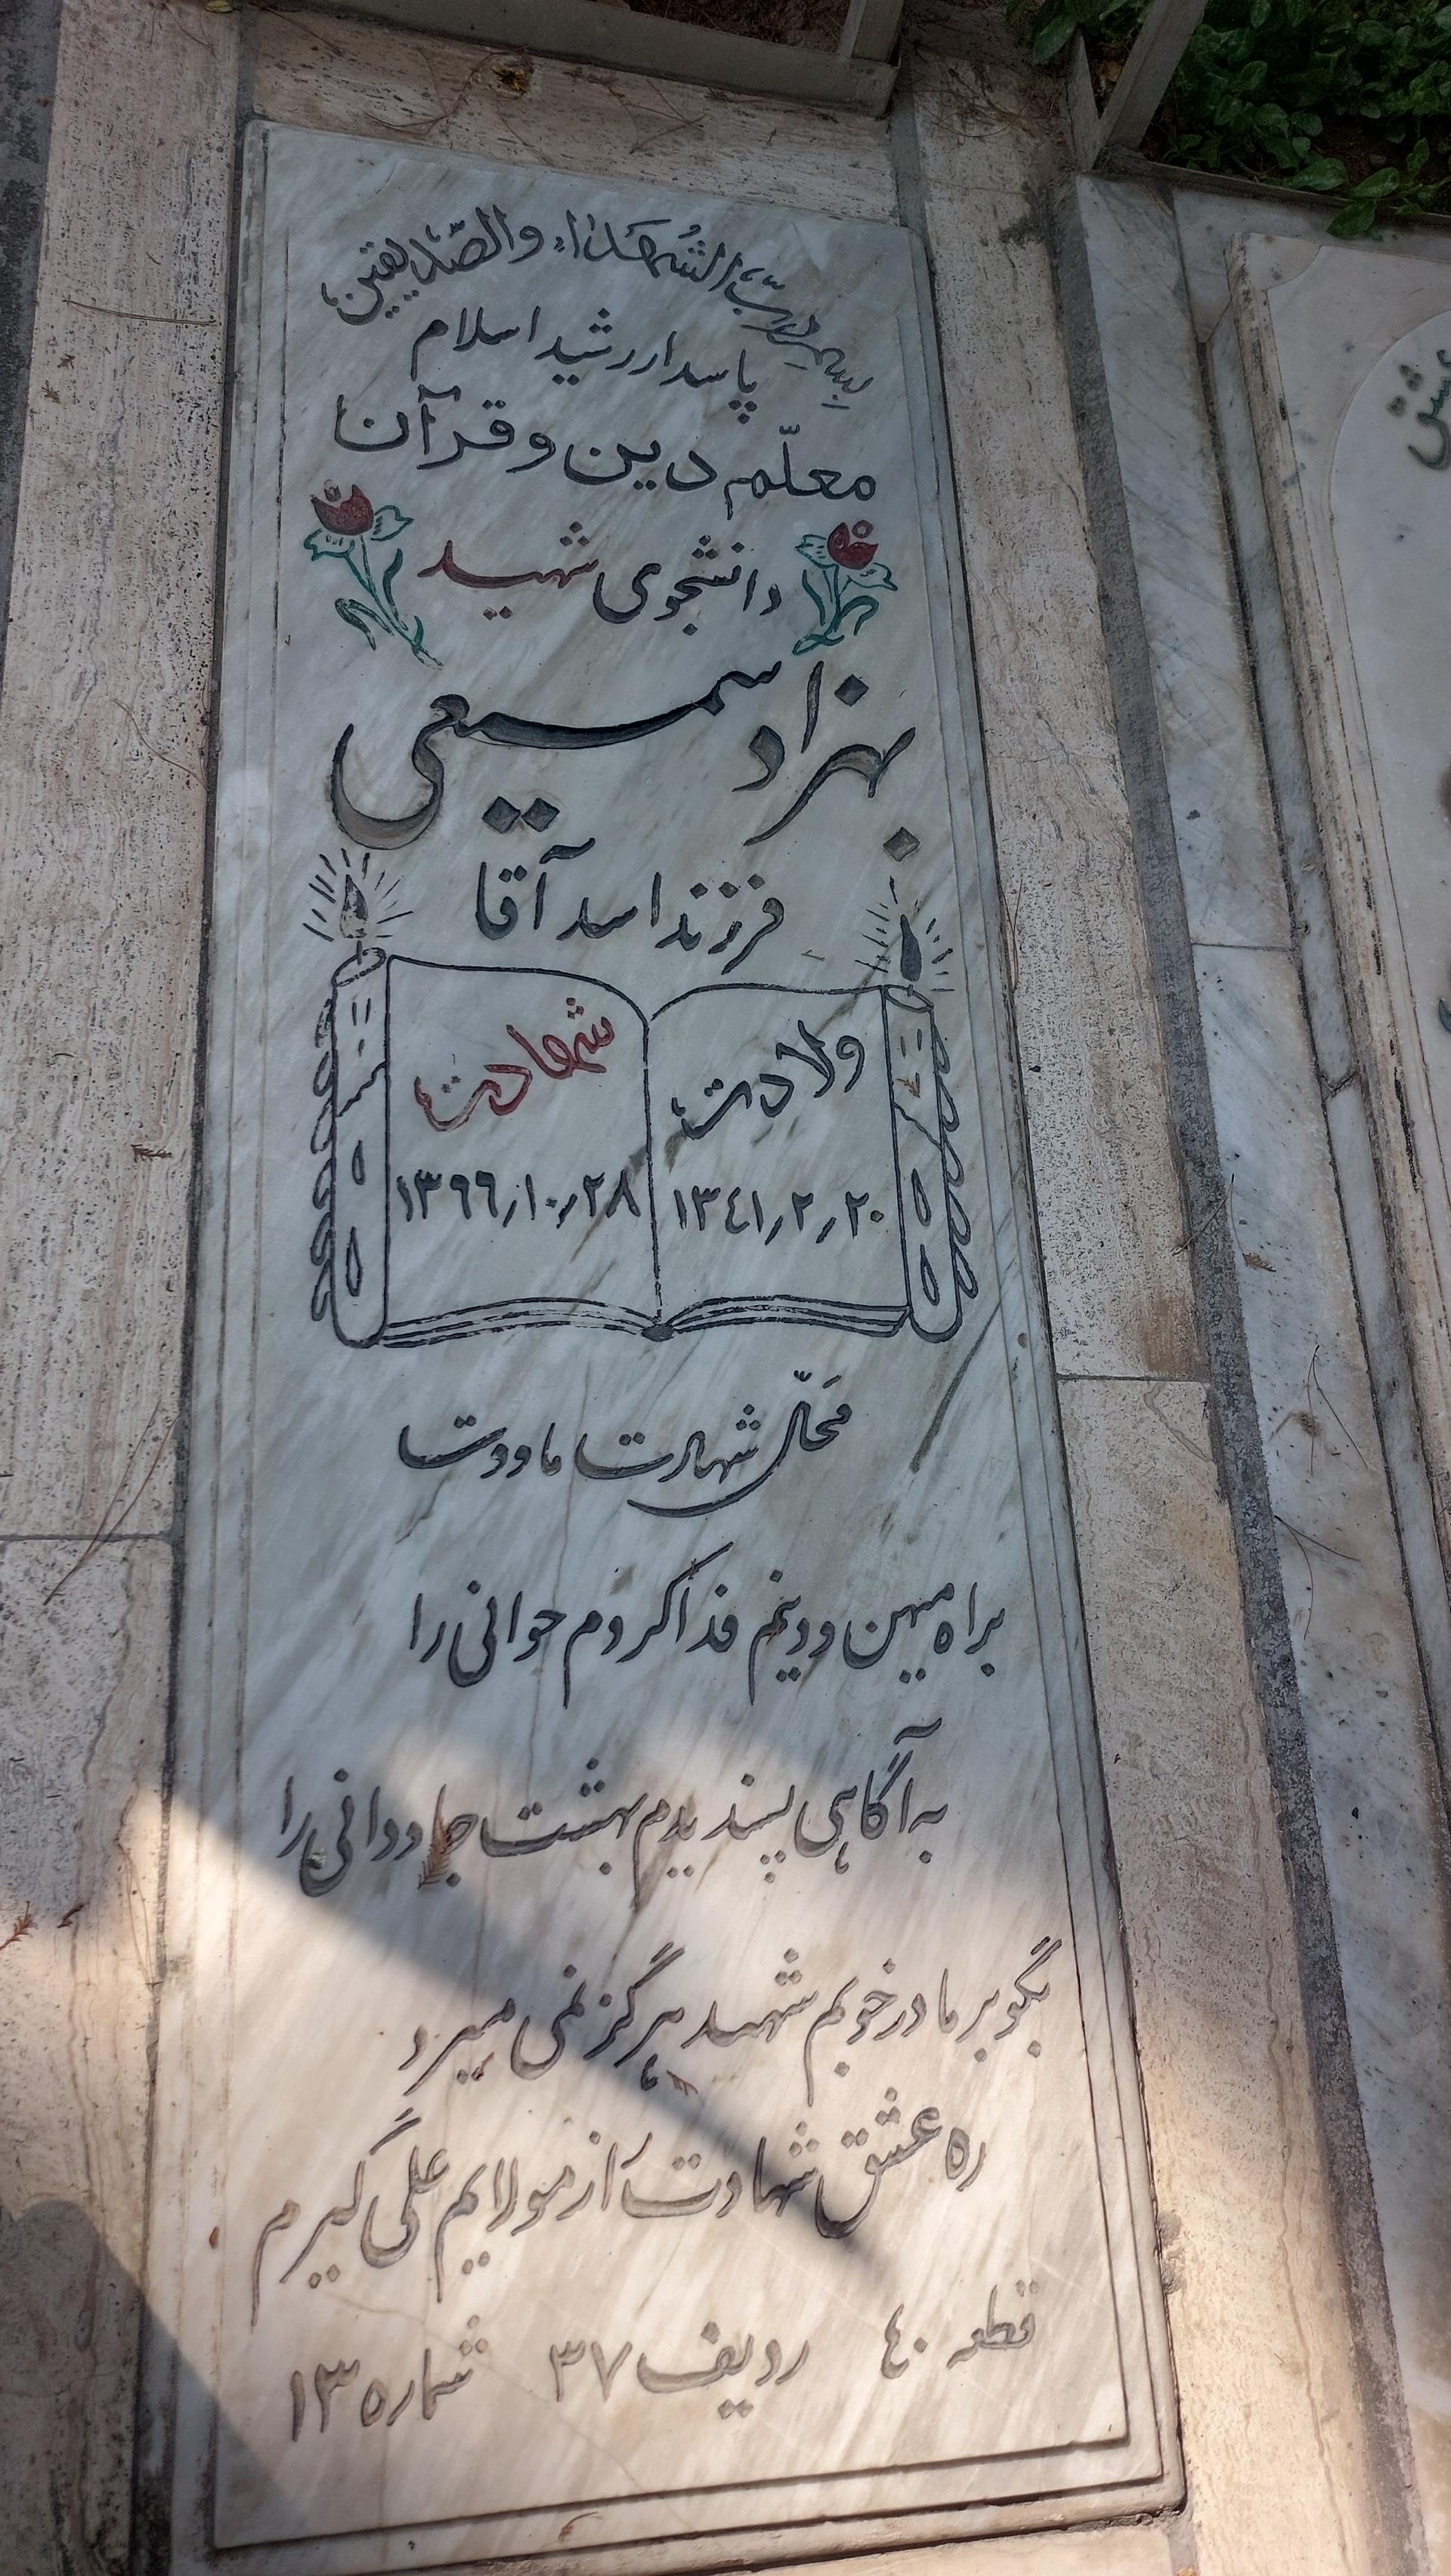 بسم ربّ الشُهداء والصّدیقین
پاسدار رشید اسلام
معلّم دین و قرآن
دانشجوی شهید
بهزاد سمیعی
فرزند اسد آقا
ولادت
۱۳٤۱٫۲٫۲۰
شهادت
۱۳۶۶٫۱۰٫۲۸
محَلّ شهادت ماووت
براه میهن و دینم فدا کردم جوانی را
به آگاهی پسندیدم بهشت جاودانی را
بگو بر مادر خوبم شهید هرگز نمی میرد
ره عشق شهادت از مولایم علی گیرم
قطعه ٤۰ ردیف ۳۷ شماره ۱۳
عشق